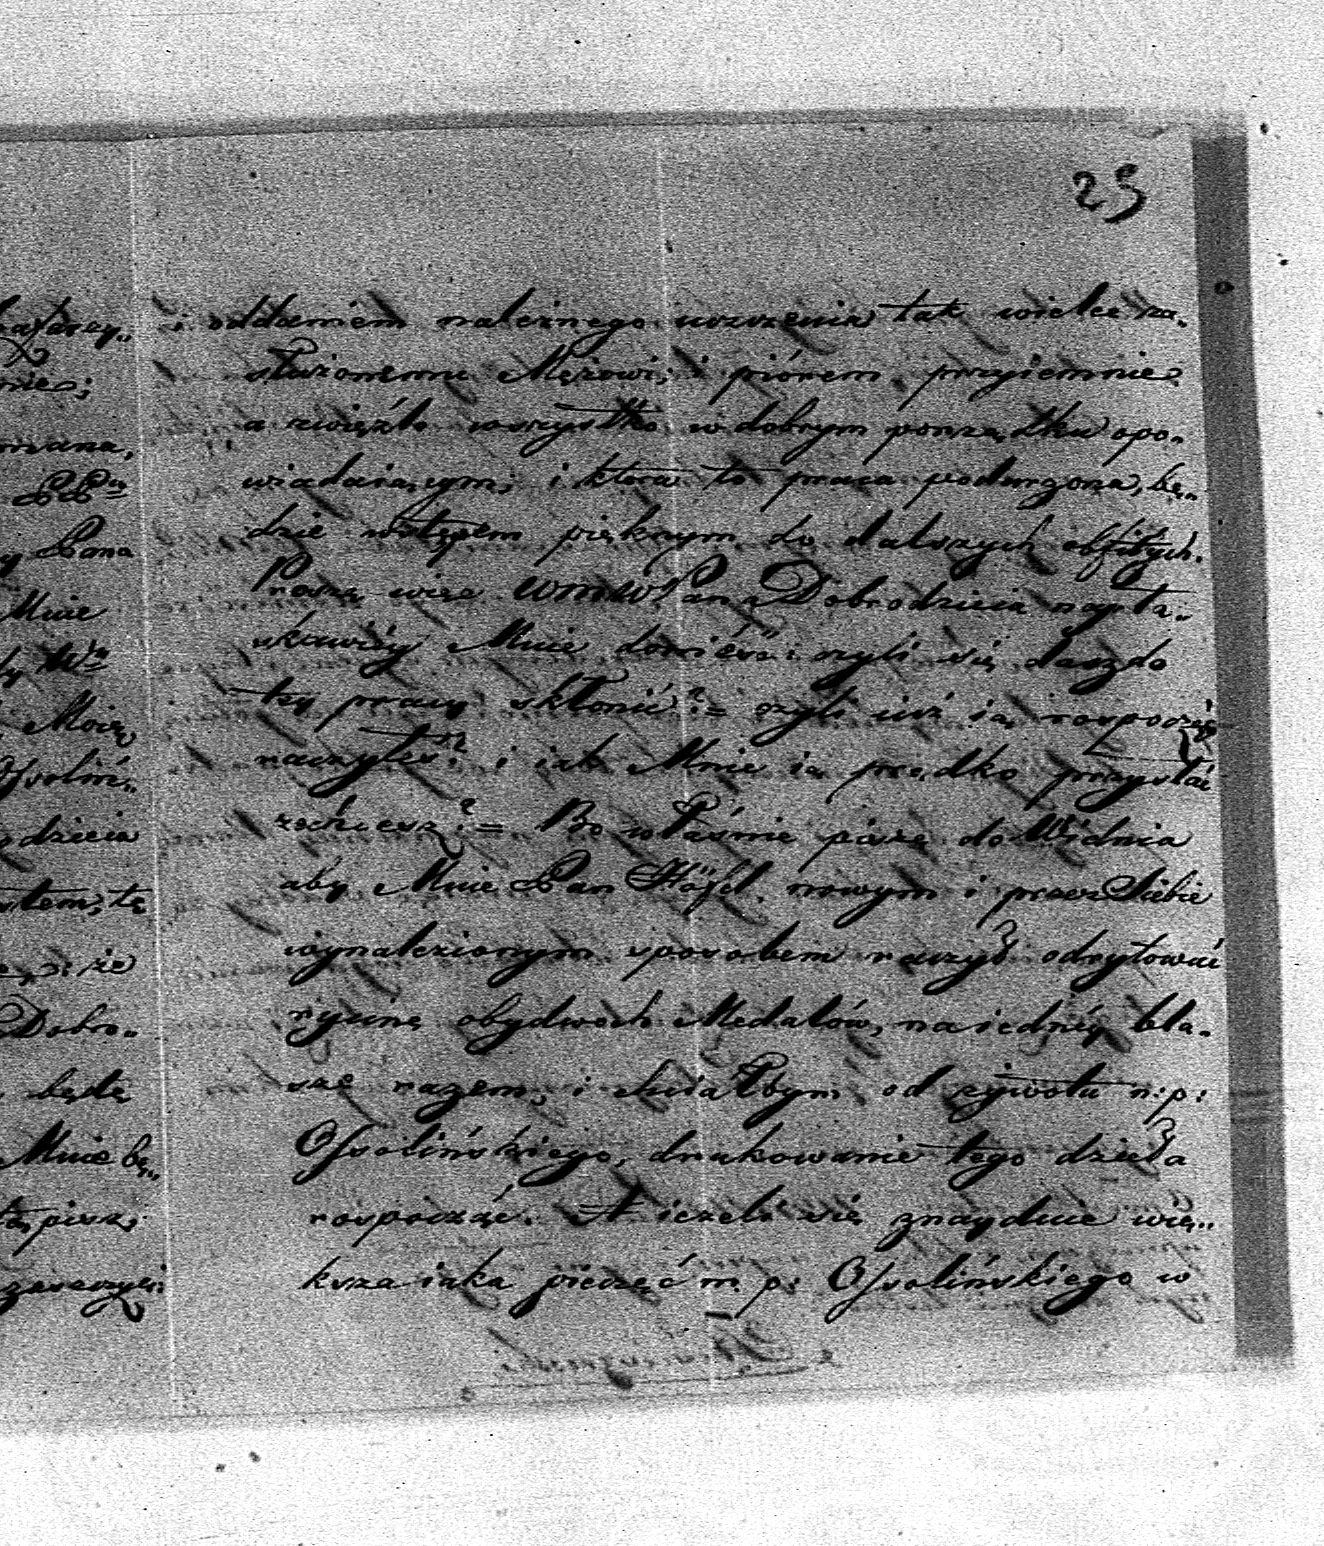 25
i oddaniem należnego uczczenia tak wielce za„
służonemu Mężowi; i piórem przyiemnie
a zwięźle wszystko w dobrym porządku opo„
wiadaiącym; i która to praca podurzona, bę„
dzie wstępem pięknym do dalszych obfitych.
Proszę więc WmWPana Dobrodzieia nayła„
skawiéy Mnie donieść: czyli się do
téy pracy skłonił? = czyli iuż ią rospoczął
raczyłeś? i iak Mnie ią prędko przysłać
zechcesz? = Bo właśnie piszę do Widnia
aby Mnie Pan Höfel nowym i przez Siebie
wynalezionym sposobem raczył odrytować
rycinę obydwoch Medalów, na iednéy bla„
sze razem; i chciałbym od żywota n: p:
Ossolińskiego, drukowanie tego dzieła
rospocząć. A ieżeli się znayduie wię„
ksza iaka pieczęć n. p: Ossolińskiego w
mana,
Pana
Mnie
Moię
Ossoliń„
odzieia
że
Dobro„
będę
Mnie bę„